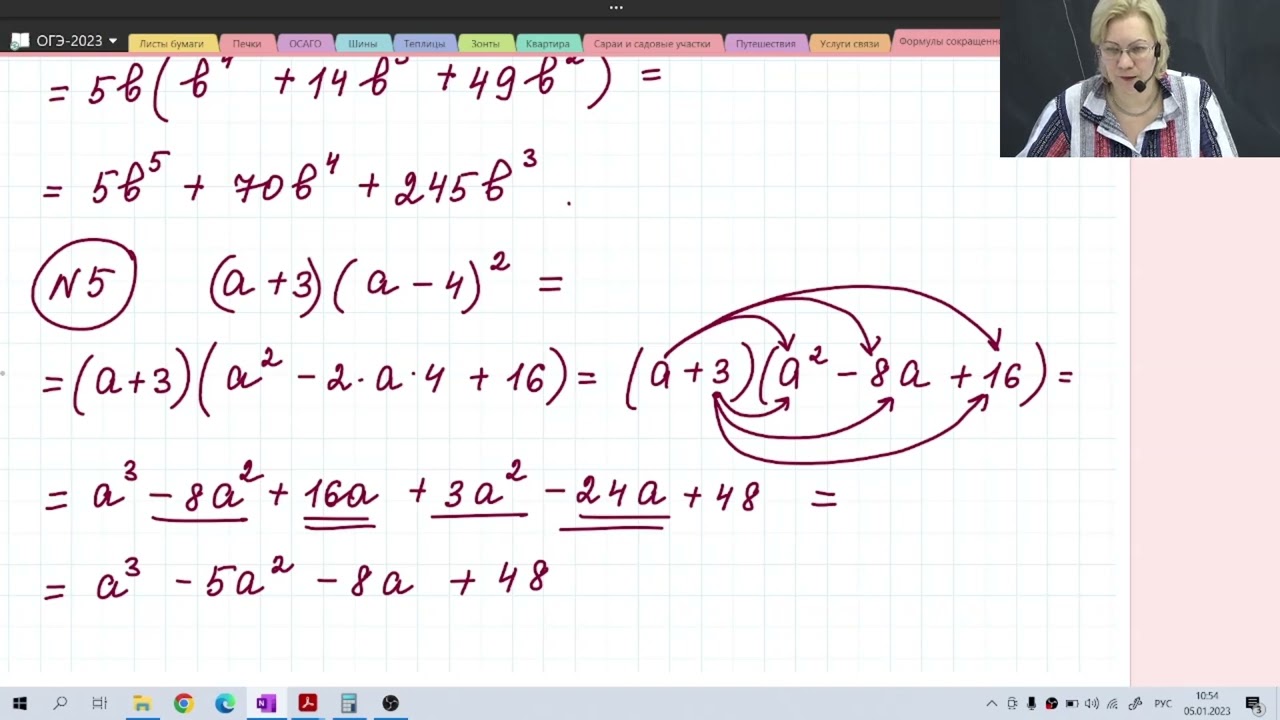 ОГЭ-2023
Листы бумаги Печки ОСАГО Шины Теплицы Зонты Квартира Сараи и садовые участки Путешествия Услуги связи Формулы сокращенн
= 5b(b⁴ + 14b³ + 49b²) =
= 5b⁵ + 70b⁴ + 245b³.
N5 (a+3)(a-4)² =
=(a+3)(a² - 2·a·4 + 16) = (a+3)(a² - 8a + 16) =
= a³ - 8a² + 16a + 3a² - 24a + 48 =
= a³ - 5a² - 8a + 48
РУС 10:54
05.01.2023 3